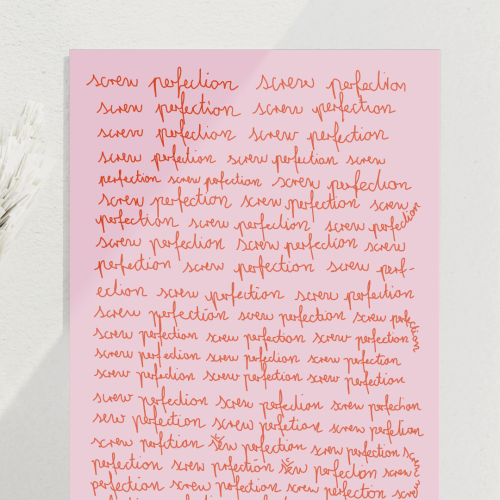 screw perfection screw perfection
screw perfection screw perfection
screw perfection screw perfection
screw perfection screw perfection screw
perfection screw perfection screw perfection
screw perfection screw perfection screw
perfection screw perfection screw perfection
screw perfection screw perfection screw
perfection screw perfection screw perf-
ection screw perfection screw perfection
screw perfection screw perfection screw perfection
screw perfection screw perfection screw perfection
screw perfection screw perfection screw perfection
screw perfection screw perfection screw perfection
screw perfection screw perfection screw perfection
serw perfection screw perfetion screw perfection
screw perfction screw perfection screw perfection screw
perfection screw perfection screw perfection screw
perfection screw perfection screw perfection screw